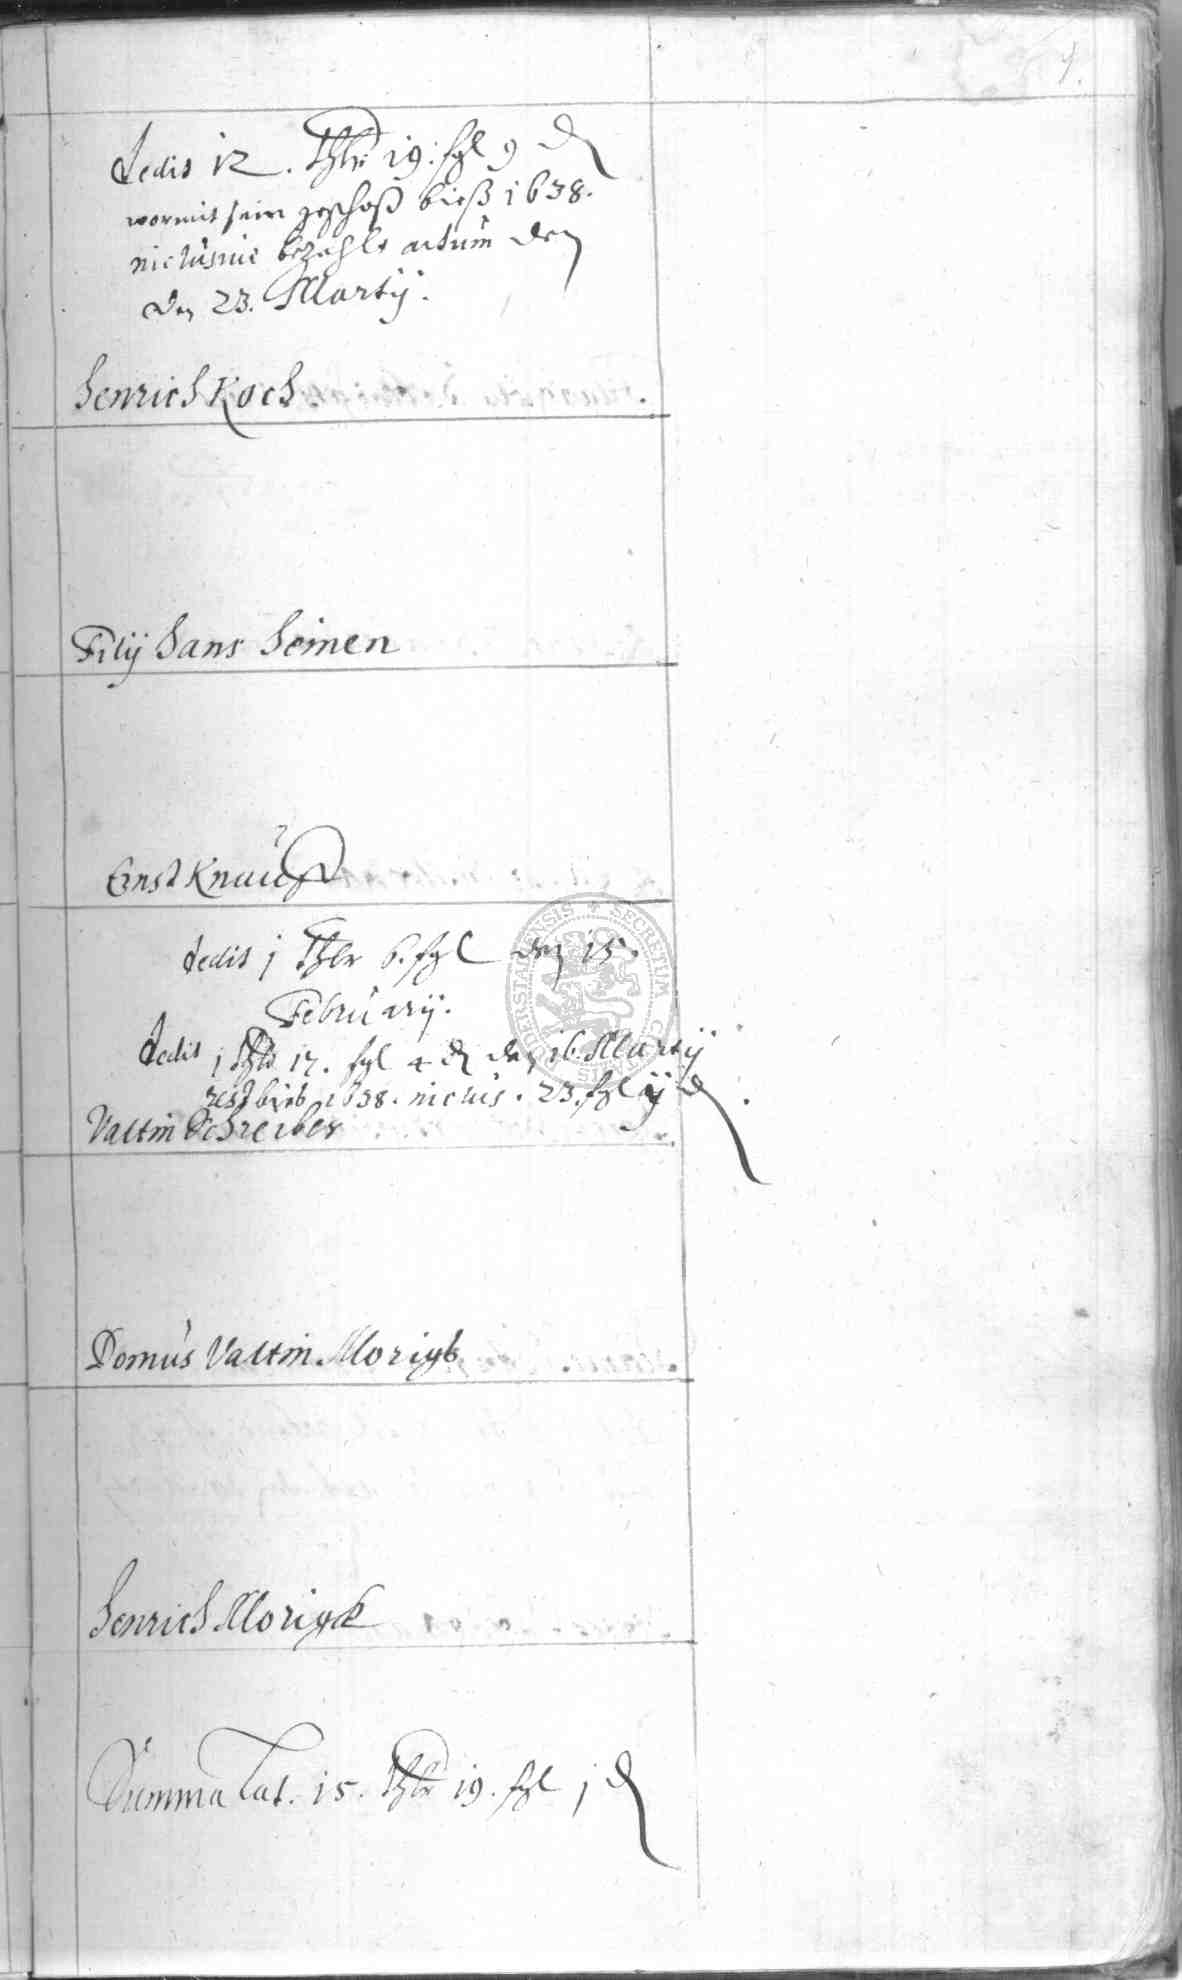 1.
dedit 12. Thlr 19. sgl 9 d
wormit sein geschoß bieß 1638.
inclusive bezahlt actum den
den 23. Martij.
Henrich Koch
Filij Hans Heinen
Ernst Knauff
dedit 1 Thlr 6. sgl den 15.
Februarij.
dedit 1 Thlr 17. sgl 4 d den 16. Martij
rest bieß 1638. inclus. 23. sgl ij d
Valtin Schreiber
Domus Valtin Morigk
Henrich Morigk
Summa Lat. 15. Thlr 19. sgl 1 d
SECRETUM